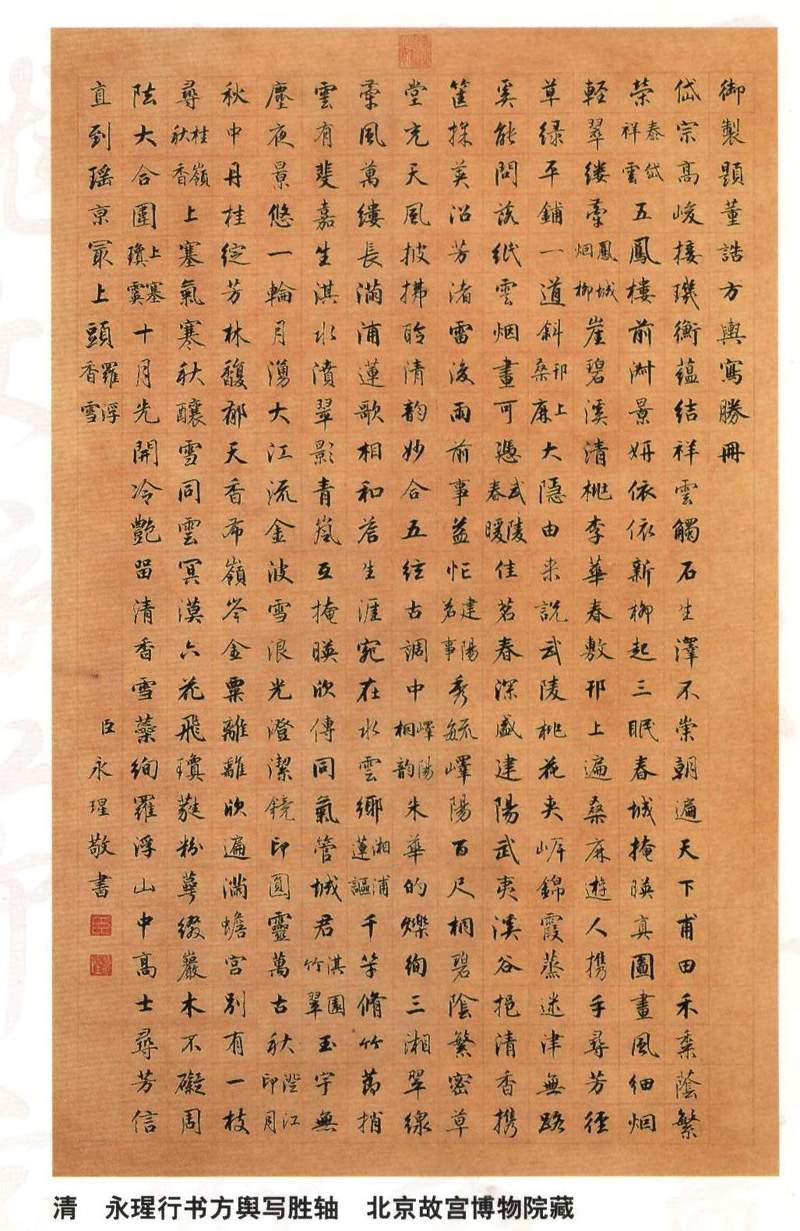 御製題董誥方輿寫勝冊
岱宗高峻接璣衡蘊結祥雲觸石生澤不崇朝遍天下甫田禾黍蔭繁
榮泰岱祥雲五鳳樓前淑景妍依依新柳起三眠春城掩暎真圖畫風細烟
輕翠縷牽鳳城烟柳崖碧溪清桃李華春敷邗上遍桑麻遊人携手尋芳徑
草綠平鋪一道斜邗上桑麻大隱由来說武陵桃花夾岸錦霞蒸迷津無路
奚能問該紙雲烟畫可憑武陵春暖佳茗春深盛建陽武夷溪谷挹清香携
筐採英沿芳渚雷後雨前事益忙建陽茗事秀毓嶧陽百尺桐碧陰繁密草
堂充天風披拂聆清韵妙合五絃古調中嶧陽桐韵朱華的爍絢三湘翠線
牽風萬縷長滿浦蓮歌相和答生涯宛在水雲鄉湘浦蓮謳千竿脩竹蔚捎
雲有斐嘉生淇水濆翠影青嵐互掩暎欣傳同氣管城君淇園竹翠玉宇無
塵夜景悠一輪月湧大江流金波雪浪光澄潔鏡印圓靈萬古秋澄江印月
秋中丹桂綻芳林馥郁天香布嶺岑金粟離離欣遍滿蟾宮別有一枝
尋桂嶺秋香上塞氣寒秋釀雪同雲冥漠六花飛瓊蕤粉萼綴巖木不礙周
阹大合圍上塞瓊霙十月先開冷艷留清香雪蘂絢羅浮山中高士尋芳信
直到瑤京最上頭羅浮香雪
臣永瑆敬書
清 永瑆行书方舆写胜轴 北京故宫博物院藏